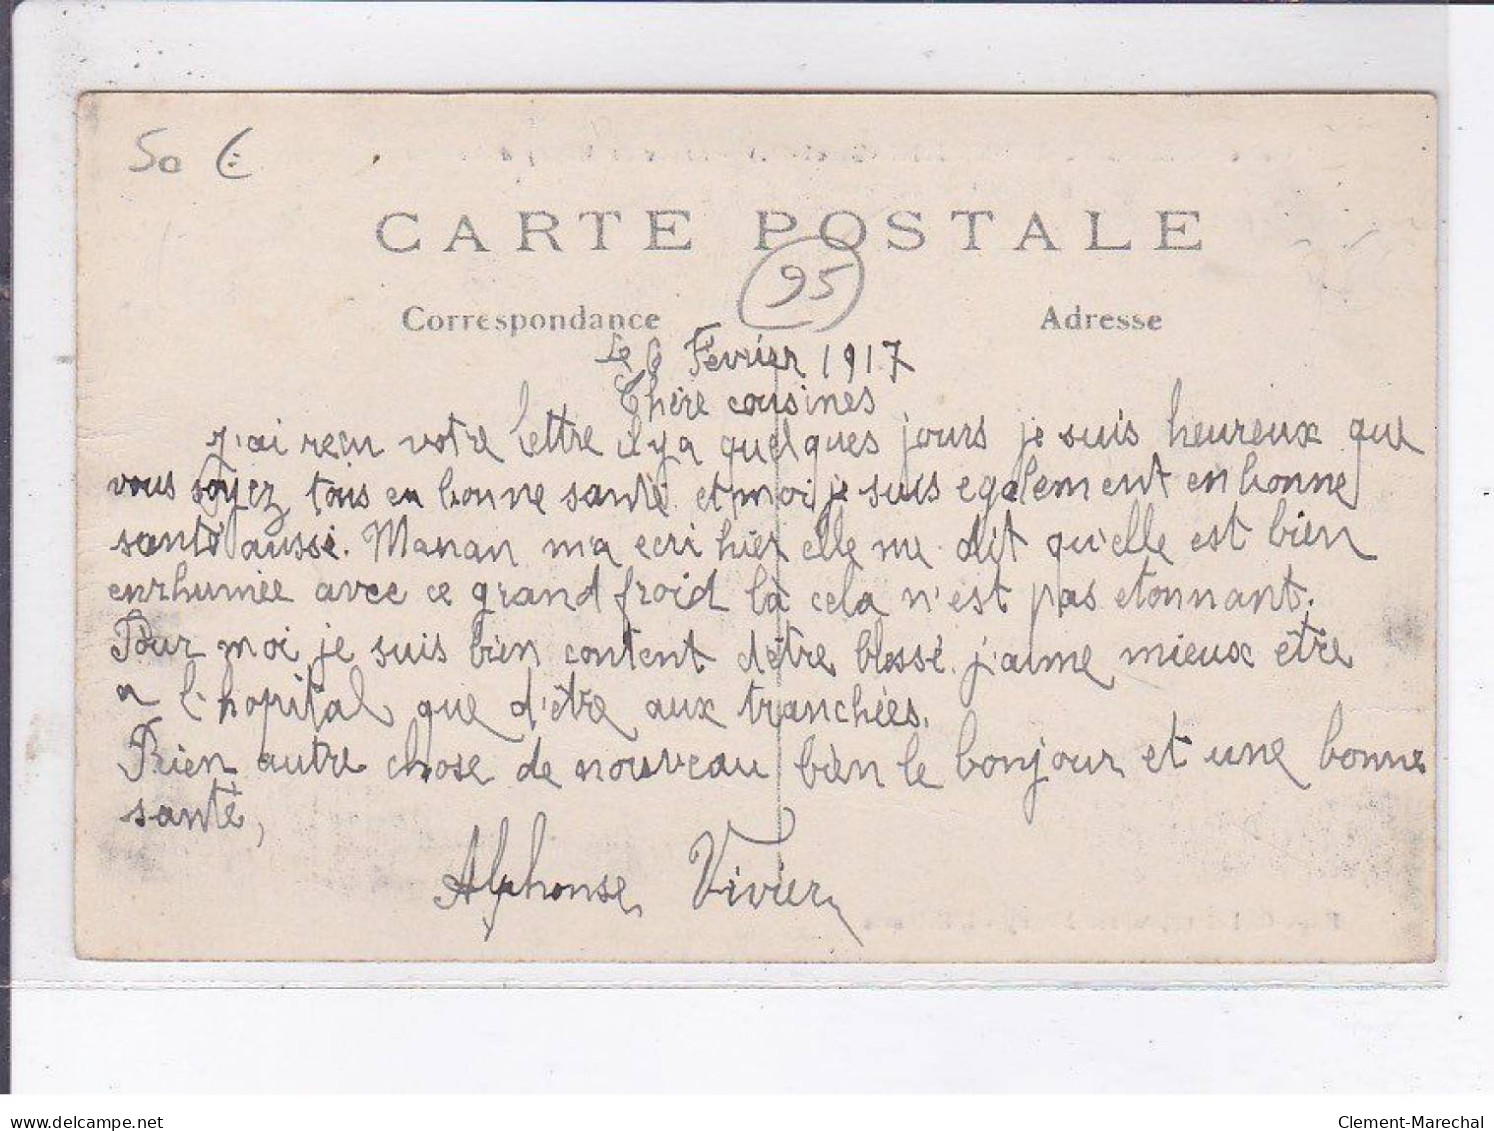 50 €
CARTE POSTALE
95
Correspondance Adresse
Le 6 Fevrier 1917
Chère cousines
J'ai reçu votre lettre il y a quelques jours je suis heureux que
vous soyez tous en bonne santé et moi je suis egalement en bonne
santé aussi. Manan m'a ecri hier elle me dit qu'elle est bien
enrhumée avec ce grand froid là cela n'est pas etonnant.
Pour moi je suis bien content d'être blessé j'aime mieux etre
a l'hopital que d'être aux tranchées.
Rien autre chose de nouveau bien le bonjour et une bonne
santé,
Alphonse Vivier
delcampe.net
Clement-Marechal